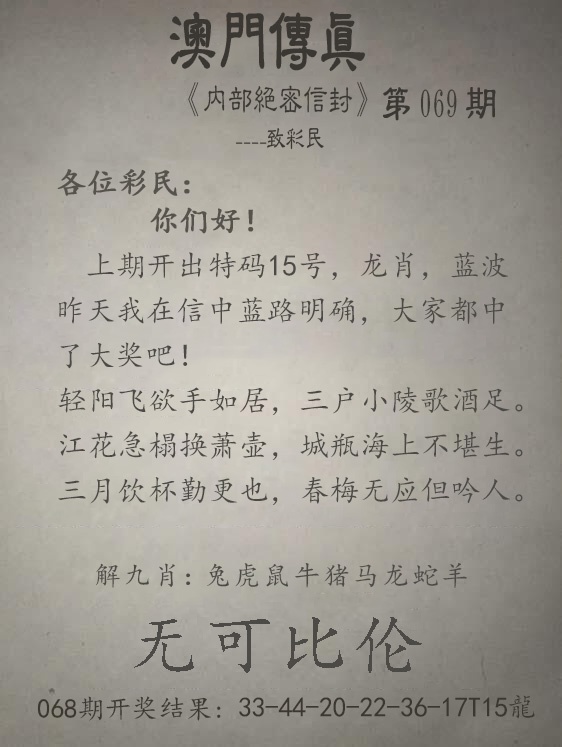 澳門傳真
《内部絕密信封》第069期
----致彩民
各位彩民：
你们好！
上期开出特码15号，龙肖，蓝波
昨天我在信中蓝路明确，大家都中
了大奖吧！
轻阳飞欲手如居，三户小陵歌酒足。
江花急榻换萧壶，城瓶海上不堪生。
三月饮杯勤更也，春梅无应但吟人。
解九肖：兔虎鼠牛猪马龙蛇羊
无可比伦
068期开奖结果：33-44-20-22-36-17T15龍